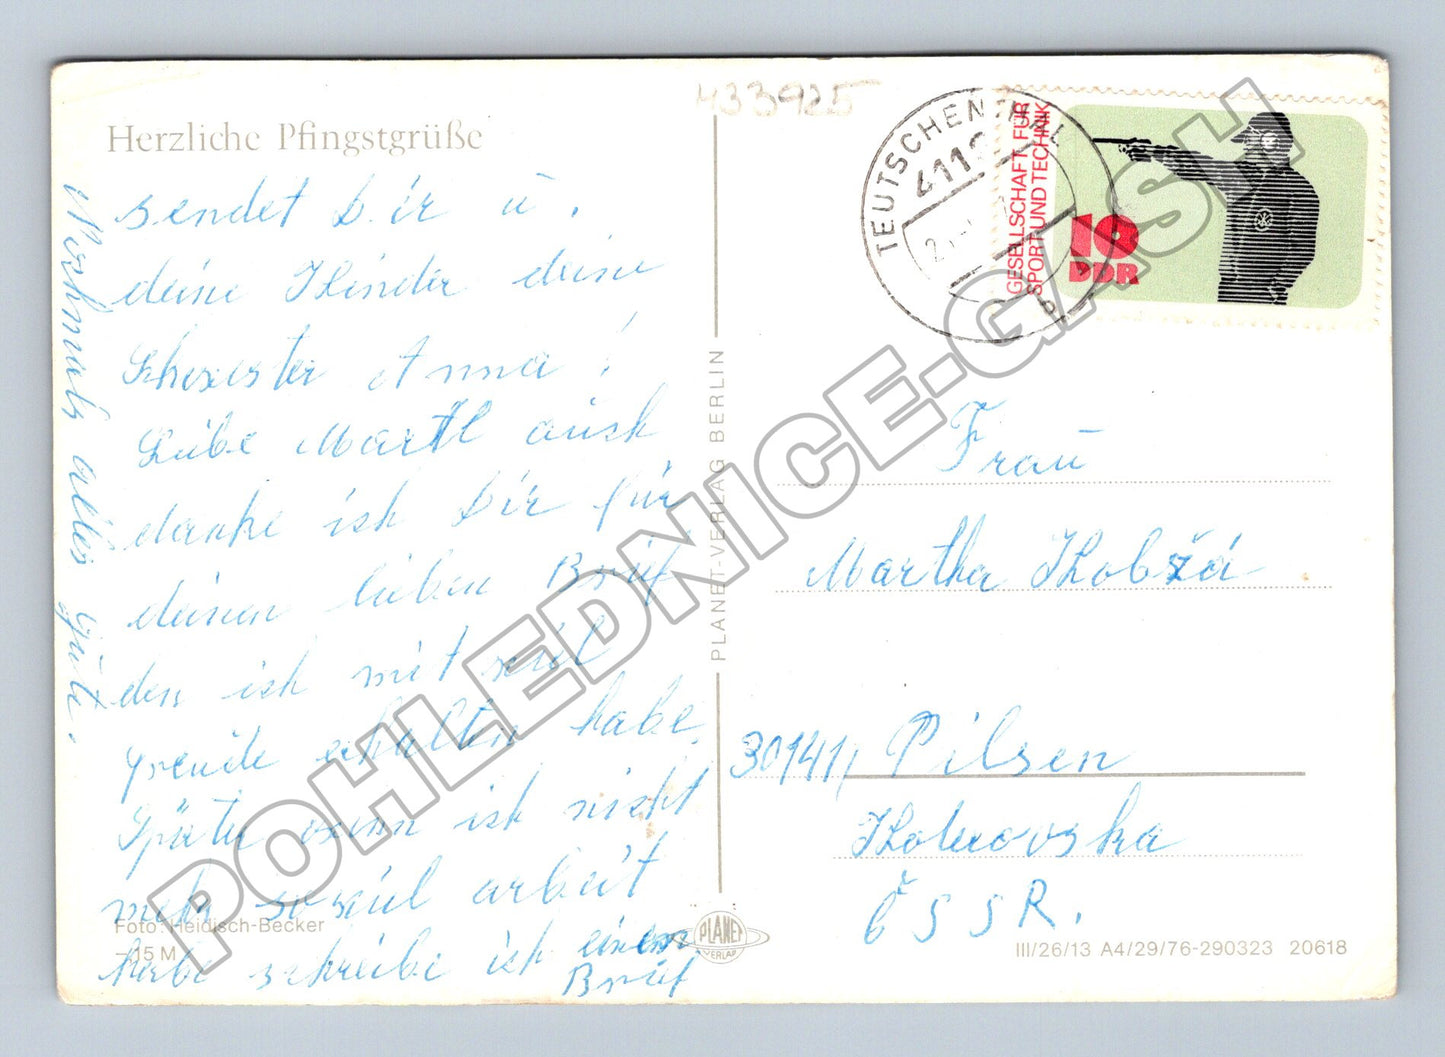 433925
Herzliche Pfingstgrüße
sendet Dir u.
deine Kinder deine
Schwester Anna!
Liebe Martl auch
danke ich Dir für
deinen lieben Brief
den ich mit viel
Freude erhalten habe.
Später wenn ich nicht
mehr so viel arbeit
habe schreibe ich einen
Brief
Nochmals alles gute.
Foto: Heidisch-Becker
–,15 M
PLANET-VERLAG BERLIN
PLANET
VERLAG
TEUTSCHENTHAL
GESELLSCHAFT FÜR
SPORT UND TECHNIK
10
DDR
Frau
Martha Kobzá
30141 Pilsen
ČSSR.
III/26/13 A4/29/76-290323 20618
POHLEDNICE-GASH